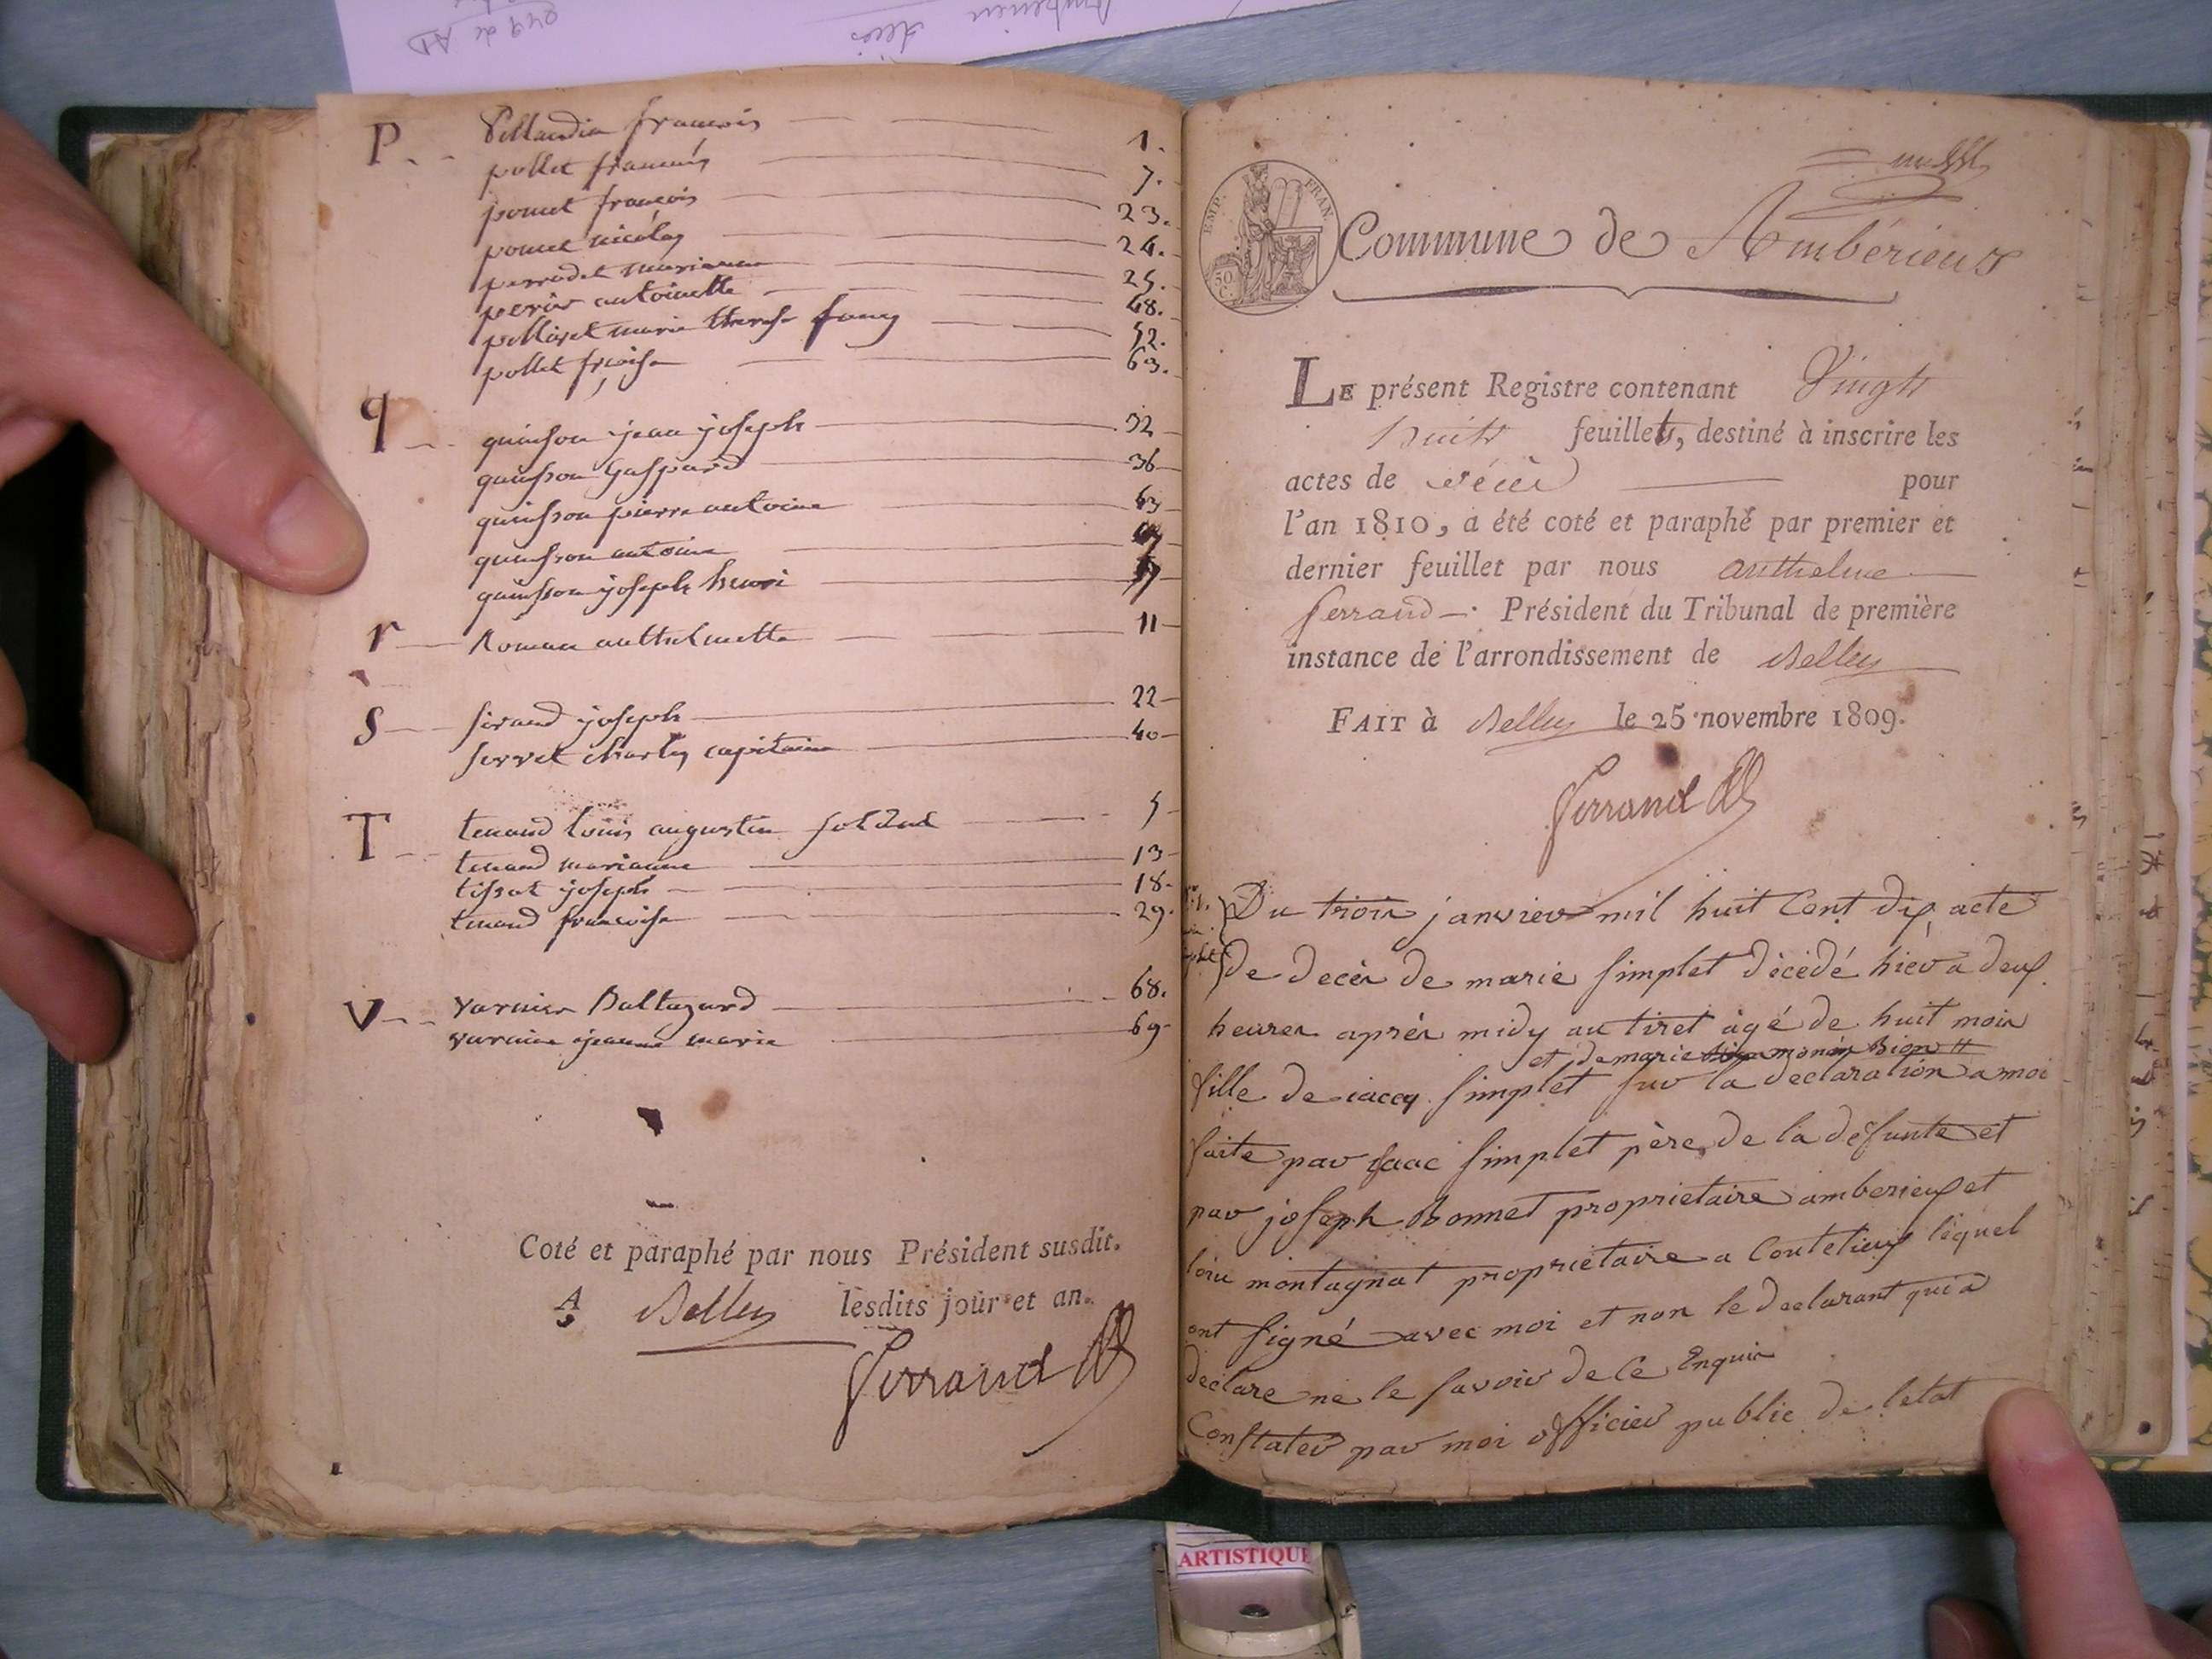 P. - - Pellaudin francois 1.
pollet francois 7.
poncet françois 23.
poncet nicolas 24.
perrodet marianne 25.
perier antoinette 48.
pellivet marie therese fanny 52.
pollet frcoise 63.
q - - - quinson jean joseph 32
quinson Gaspard 36
quinson pierre antoine 43
quinson antoine
quinson joseph henri
r - Roman anthelmette 11
S - sirand joseph 22
servet charles capitaine 40
T - - tenand louis augustin soldat 5
tenand marianne 13
tissot joseph 18.
tenand francoise 29.
V - - - Varnier Baltazard 68.
varnier jeanne marie 69
Coté et paraphé par nous Président susdit.
A Belley lesdits jour et an.
Ferrand
EMP. FRAN.
50 C.
Commune de Ambérieux
LE présent Registre contenant Vingt
huit feuillets, destiné à inscrire les
actes de décès pour
l'an 1810, a été coté et paraphé par premier et
dernier feuillet par nous anthelme
ferrand Président du Tribunal de première
instance de l'arrondissement de Belley
FAIT à Belley le 25 novembre 1809.
Ferrand
Du trois janvier mil huit Cent dix acte
de decès de marie simplet décédé hier a deux
heures après midy au tiret âgé de huit mois
et de marie monin Bion
fille de simplet sur la declaration a moi
faite par isaac simplet père de la défunte et
par joseph Bonnet proprietaire amberieux et
montagnat proprietaire a Coutelieux lequel
ont signé avec moi et non le declarant qui a
declare ne le savoir de ce Enquis
Constater par moi officier public de letat
ARTISTIQUE